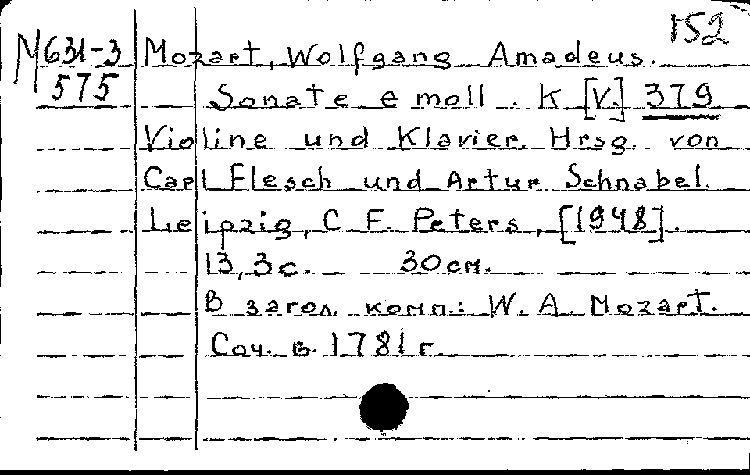 152
М631-3 Mozart, Wolfgang Amadeus.
575 Sonate e moll. K [V.] 379
Violine und Klavier. Hrsg. von
Carl Flesch und Artur Schnabel.
Leipzig, C. F. Peters, [1948].
13, 3 с. 30 см.
В загол. комп.: W. A. Mozart.
Соч. в 1781 г.